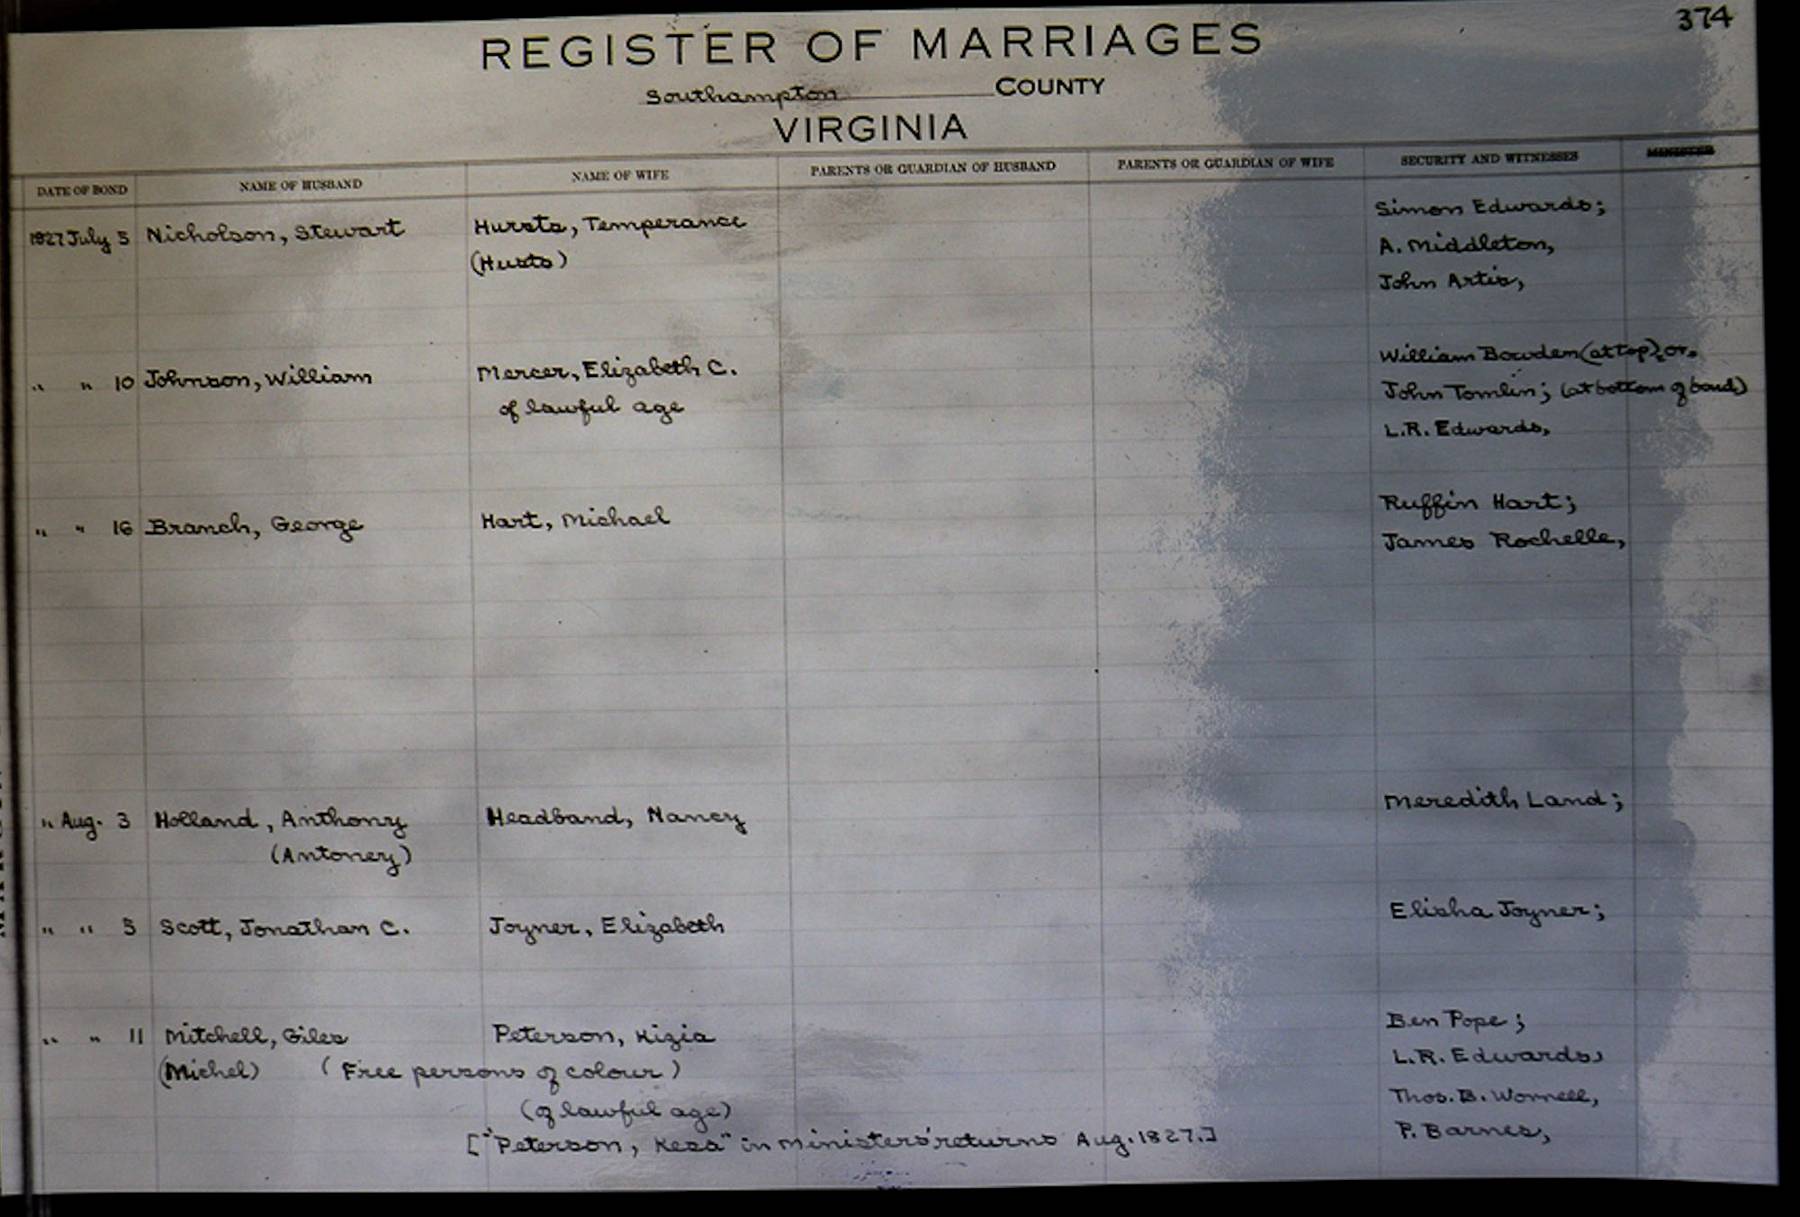 374
REGISTER OF MARRIAGES
Southampton COUNTY
VIRGINIA
DATE OF BOND NAME OF HUSBAND NAME OF WIFE PARENTS OR GUARDIAN OF HUSBAND PARENTS OR GUARDIAN OF WIFE SECURITY AND WITNESSES MINISTER
1827 July 5 Nicholson, Stewart Hursts, Temperance Simon Edwards;
(Husts) A. Middleton,
John Artis,
" " 10 Johnson, William Mercer, Elizabeth C. William Bowden (at top), or.
of lawful age John Tomlin; (at bottom of bond)
L.R. Edwards,
" " 16 Branch, George Hart, Michael Ruffin Hart;
James Rochelle,
" Aug. 3 Holland, Anthony Headband, Nancy Meredith Land;
(Antoney)
" " 5 Scott, Jonathan C. Joyner, Elizabeth Elisha Joyner;
" " 11 Mitchell, Giles Peterson, Kizia Ben Pope;
(Michel) (Free persons of colour) L.R. Edwards,
(of lawful age) Thos. B. Wornell,
["Peterson, Kesa" in Ministers' returns Aug. 1827.] P. Barnes,